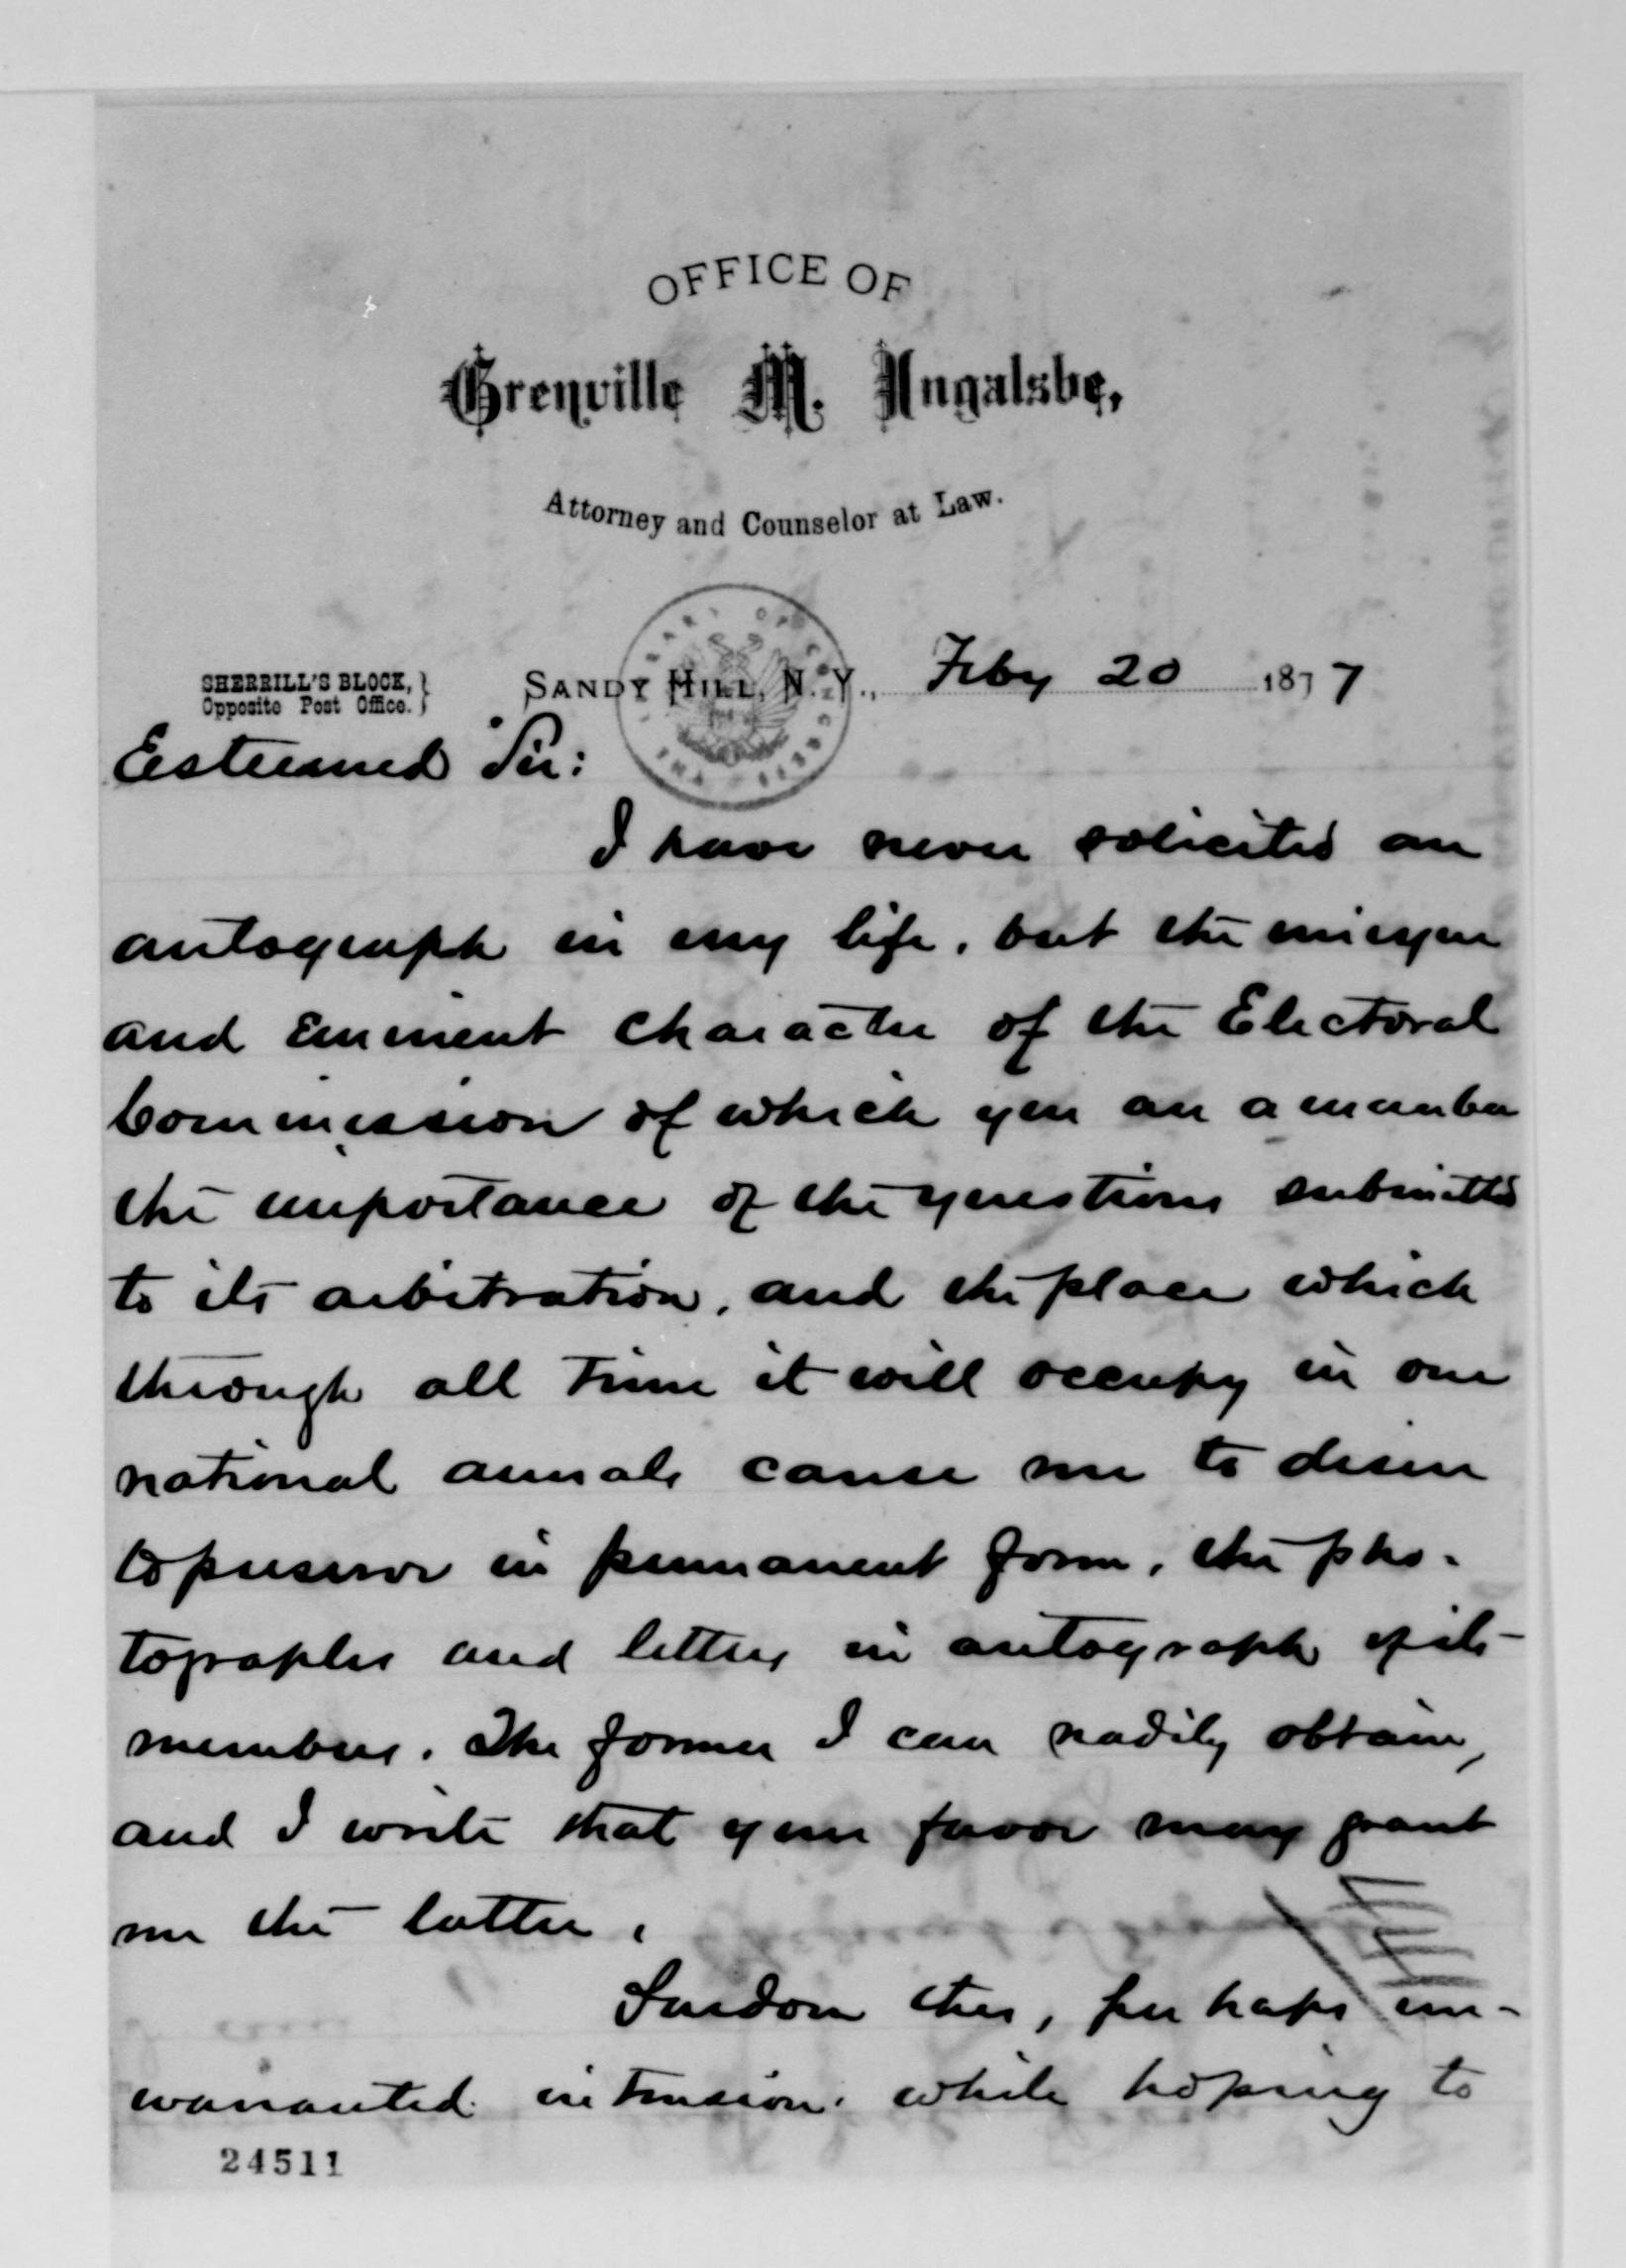 OFFICE OF
Grenville M. Ingalsbe,
Attorney and Counselor at Law.
SHERRILL'S BLOCK,
Opposite Post Office.
SANDY HILL, N. Y., Feby 20 1877
Esteemed Sir:
I have never solicited an
autograph in my life, but the unique
and eminent character of the Electoral
Commission of which you are a member
the importance of the questions submitted
to its arbitration, and the place which
through all time it will occupy in our
national annals cause me to desire
to preserve in permanent form, the pho-
tographs and letters in autograph of its
members. The former I can readily obtain,
and I write that your favor may grant
me the latter.
Pardon this, perhaps un-
warranted intrusion, while hoping to
24511